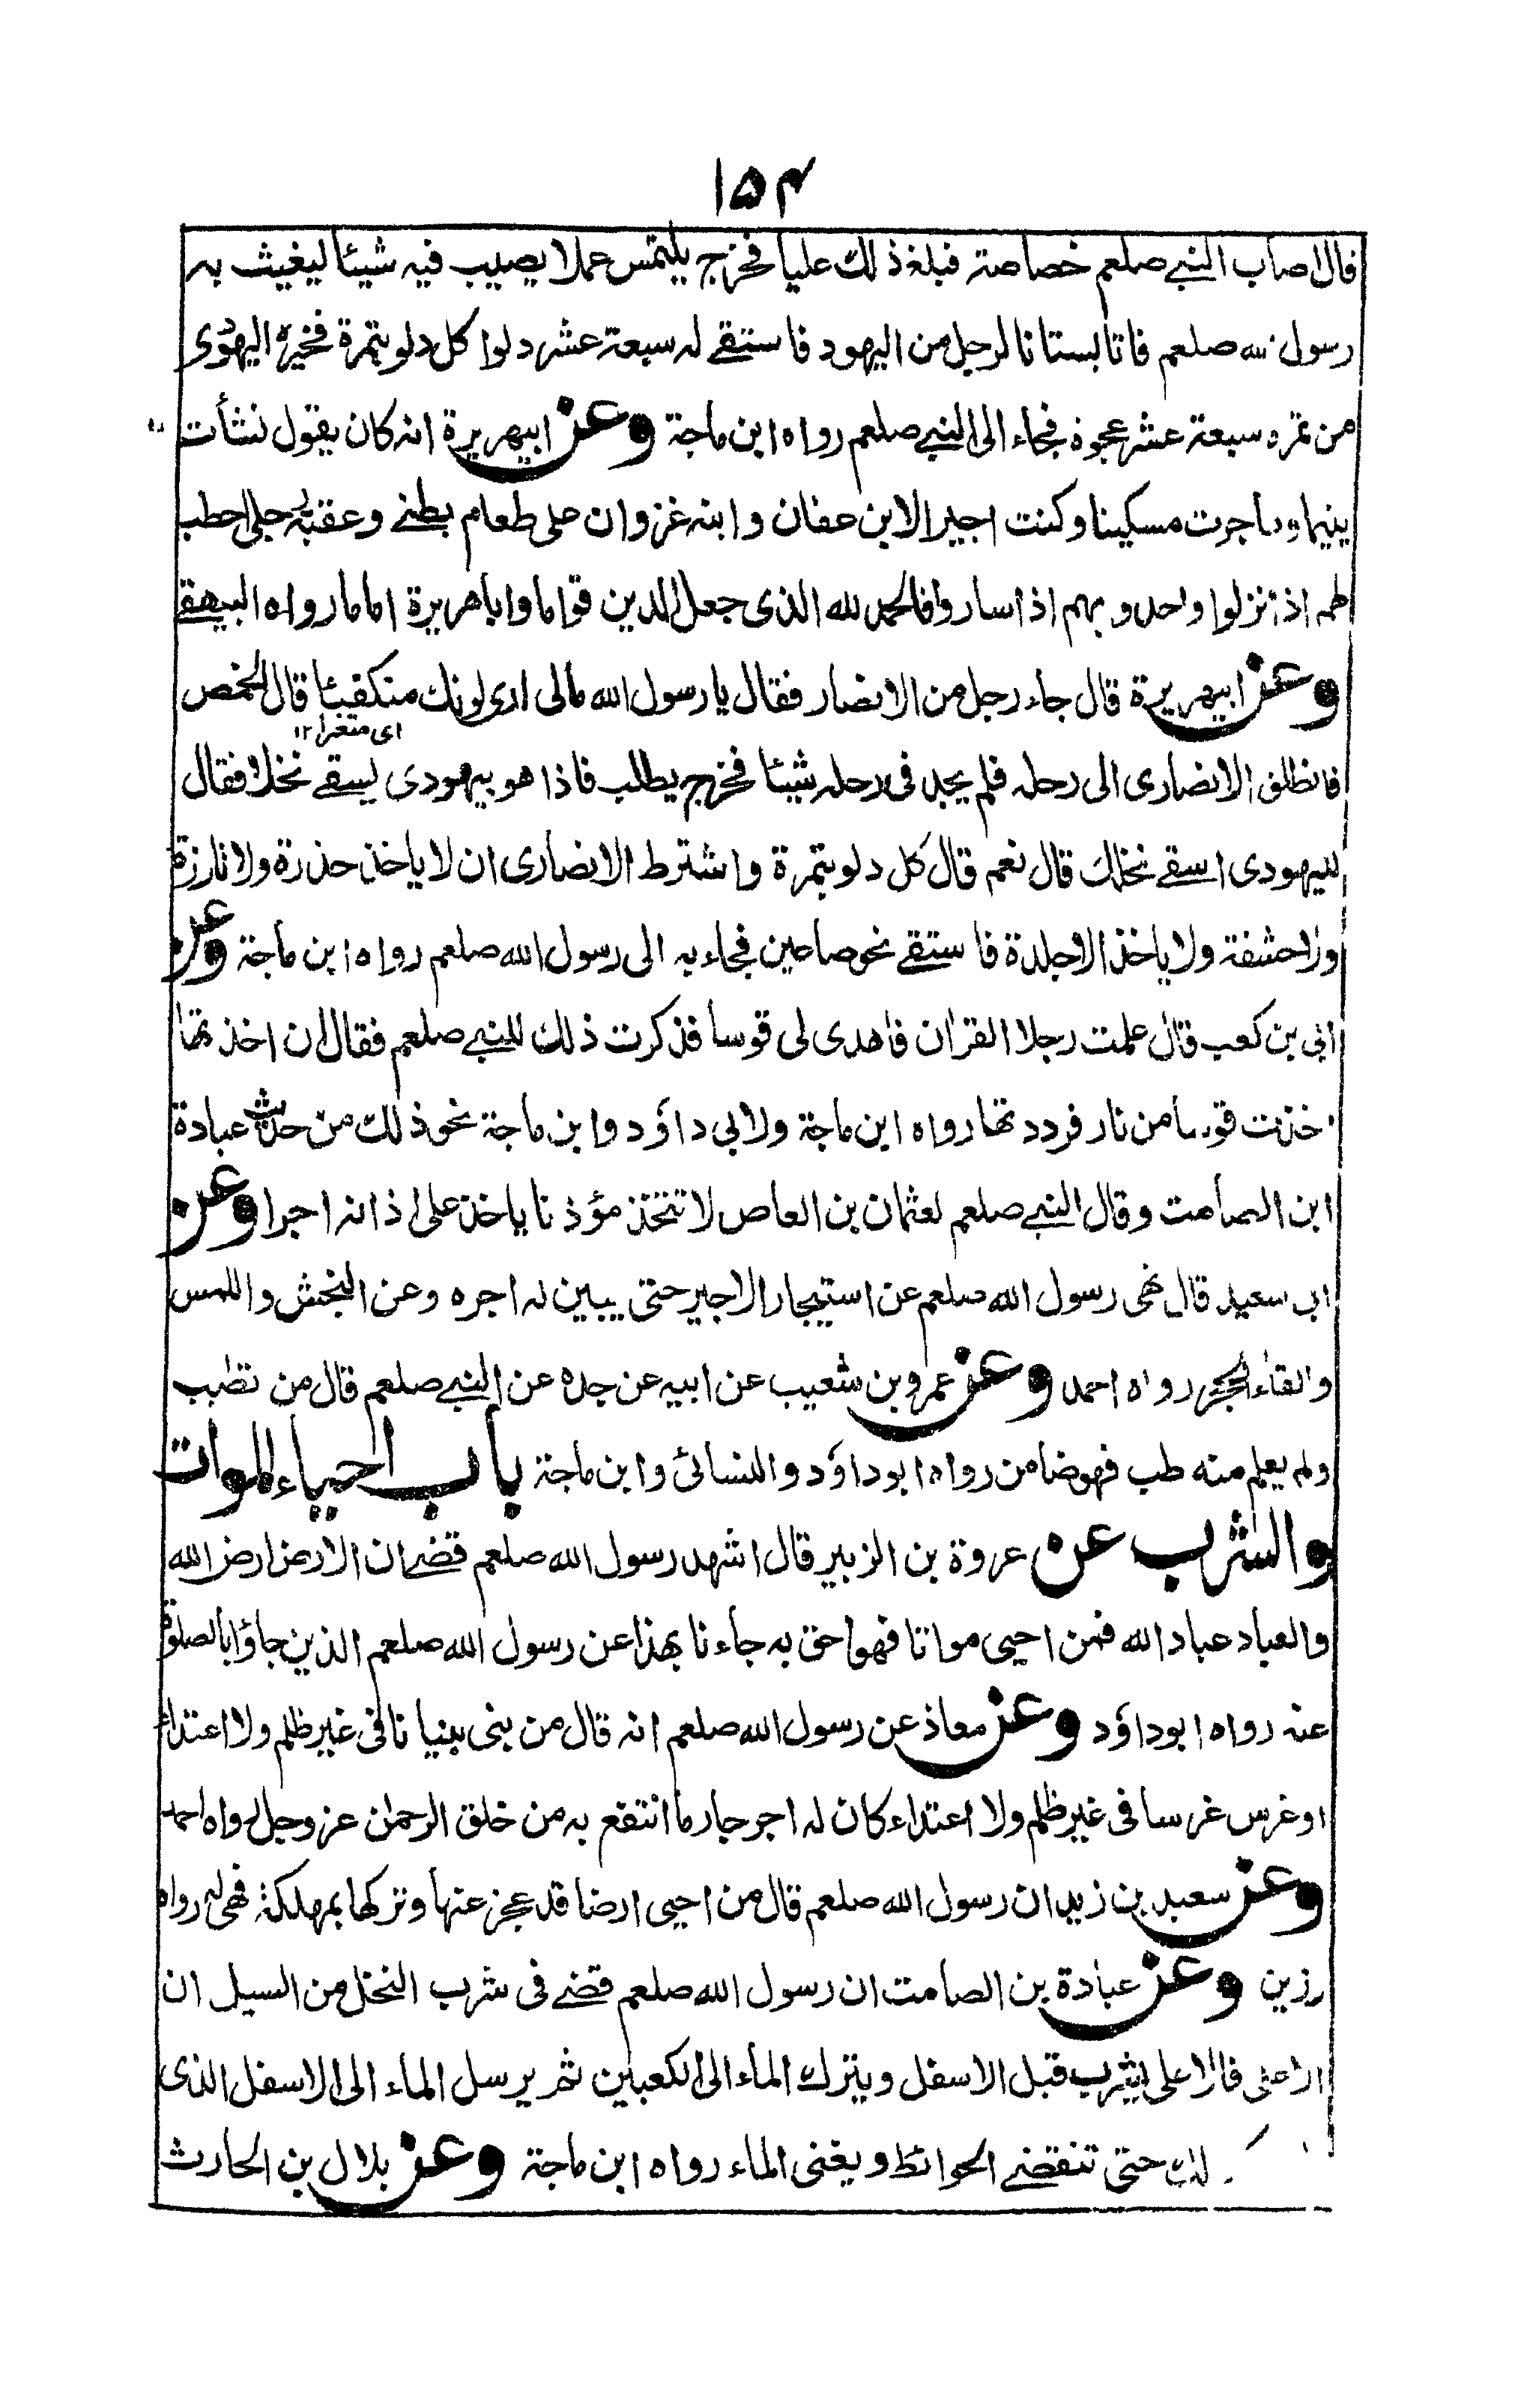 ١٥٤
قال اصاب النبي صلعم خصاصة فبلغ ذلك عليا فخرج يلتمس عملا يصيب فيه شيئا ليغيث به
رسول الله صلعم فاتا بستانا لرجل من اليهود فاستقے له سبعة عشر دلوا كل دلو بتمرة فخيره اليهودى
من تمره سبعة عشر عجوة فجاء الى النبي صلعم رواه ابن ماجة وعن ابيهريرة انه كان يقول نشأت
يتيما وهاجرت مسكينا وكنت اجيرا لابن عفان وابنه غزوان على طعام بطنے وعقبة رجلى احطب
لهم اذا نزلوا واحدو بهم اذا ساروا فالحمد لله الذى جعل الدين قواما واباهريرة اماما رواه البيهقے
وعن ابيهريرة قال جاء رجل من الانصار فقال يا رسول الله مالى ارى لونك منكفيئا قال الخمص
اى متغيرا ١٢
فانطلق الانصارى الى رحله فلم يجد فى رحله شيئا فخرج يطلب فاذا هو بيهودى يسقے نخلا فقال
لليهودى اسقے نخلك قال نعم قال كل دلو بتمرة واشترط الانصارى ان لا ياخذ حذرة ولا تارزة
ولا حشفة ولا ياخذ الا جلدة فاستقے نحو صاعين فجاء به الى رسول الله صلعم رواه ابن ماجة وعن
ابى بن كعب قال علمت رجلا القران فاهدى لى قوسا فذكرت ذلك للنبي صلعم فقال ان اخذتها
اخذت قوسا من نار فرددتها رواه ابن ماجة ولابى داؤد وابن ماجة نحو ذلك من حديث عبادة
ابن الصامت وقال النبي صلعم لعثمان بن العاص لا تتخذ مؤذنا ياخذ على اذانه اجرا وعن
ابى سعيد قال نهى رسول الله صلعم عن استيجار الاجير حتى يبين له اجره وعن النجش واللمس
والقاء الحجر رواه احمد وعن عمرو بن شعيب عن ابيه عن جده عن النبي صلعم قال من تطبب
ولم يعلم منه طب فهو ضامن رواه ابو داؤد والنسائى وابن ماجة باب احياء الموات
والشرب عن عروة بن الزبير قال اشهد رسول الله صلعم قضے ان الارض ارض الله
والعباد عباد الله فمن احيى مواتا فهو احق به جاءنا بهذا عن رسول الله صلعم الذين جاؤا بالصلوة
عنه رواه ابو داؤد وعن معاذ عن رسول الله صلعم انه قال من بنى بنيانا فى غير ظلم ولا اعتداء
او غرس غرسا فى غير ظلم ولا اعتداء كان له اجر جار ما انتفع به من خلق الرحمٰن عز وجل رواه احمد
وعن سعيد بن زيد ان رسول الله صلعم قال من احيى ارضا قد عجز عنها وتركها بمهلكة فهى له رواه
رزين وعن عبادة بن الصامت ان رسول الله صلعم قضے فى شرب النخل من السيل ان
الاعلى فالاعلى يشرب قبل الاسفل ويترك الماء الى الكعبين ثم يرسل الماء الى الاسفل الذى
حتى تنقضے الحوائط ويفنى الماء رواه ابن ماجة وعن بلال بن الحارث